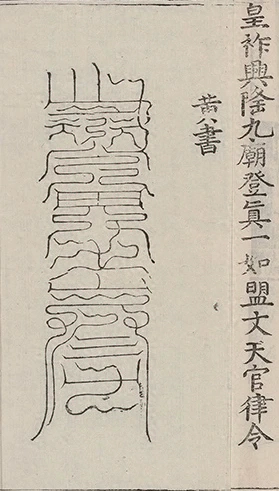 皇祚興隆九廟登真一如盟文天官律令
黃書